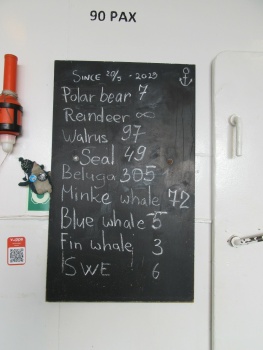 90 PAX
SINCE 20/5 - 2025
Polar bear 7
Reindeer ∞
Walrus 97
Seal 49
Beluga 305
Minke whale 72
Blue whale 5
Fin whale 3
SWE 6